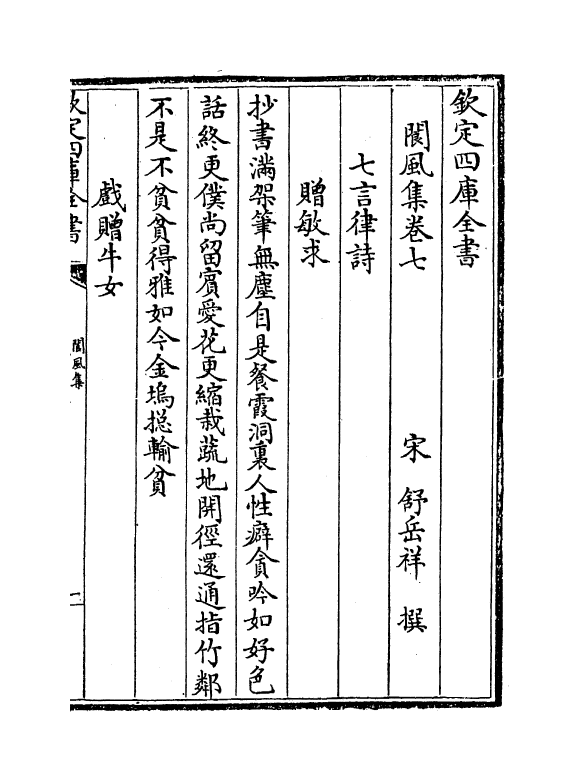 欽定四庫全書
閬風集卷七
宋 舒岳祥 撰
七言律詩
贈敏求
抄書滿架筆無塵自是餐霞洞裏人性癖貪吟如好色
話終更僕尚留賓愛花更縮栽蔬地開徑還通指竹鄰
不是不貧貧得雅如今金塢揔輸貧
戲贈牛女
欽定四庫全書
閬風集
一